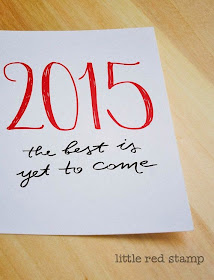 2015
the best is
yet to come
little red stamp